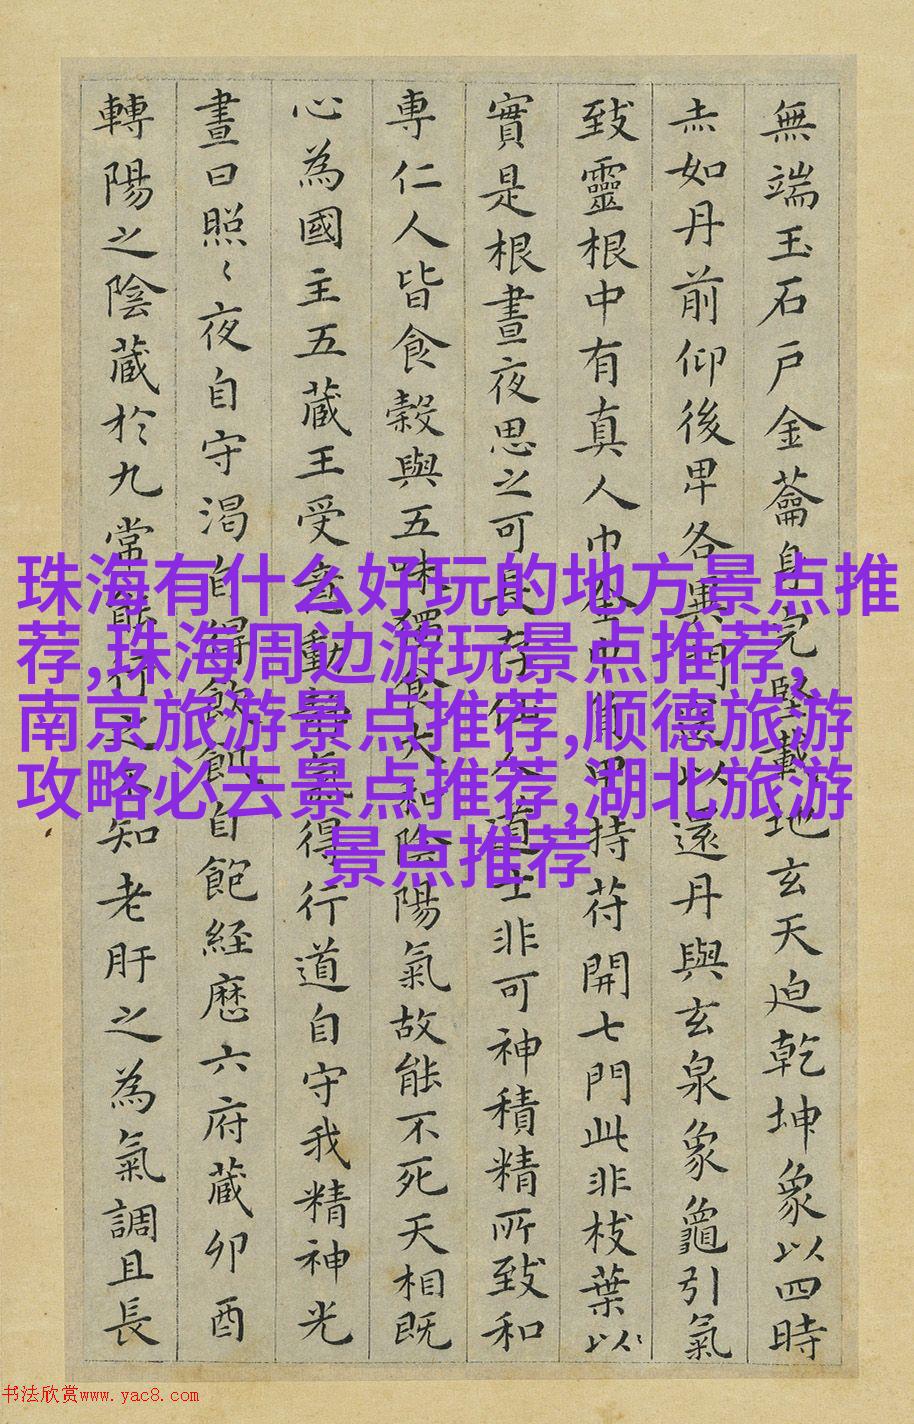 無端玉石戶金蘥身完堅載地玄天迫乾坤象以四時
赤如丹前仰後卑各異門以還丹與玄泉象龜引氣
致靈根中有真人巾金巾負甲持苻開七門此非枝葉以〻
實是根晝夜思之可長存仙人道士非可神積精所致和
專仁人皆食穀與五味獨食大和陰陽氣故能不死天相既
心為國主五藏王受意動靜氣得行道自守我精神光
晝日照〻夜自守渴自得飲飢自飽經歷六府藏卯酉
轉陽之陰藏於九常能行之不知老肝之為氣調且長
珠海有什么好玩的地方景点推
荐,珠海周边游玩景点推荐,
南京旅游景点推荐,顺德旅游
攻略必去景点推荐,湖北旅游
景点推荐
书法欣赏www.yac8.com